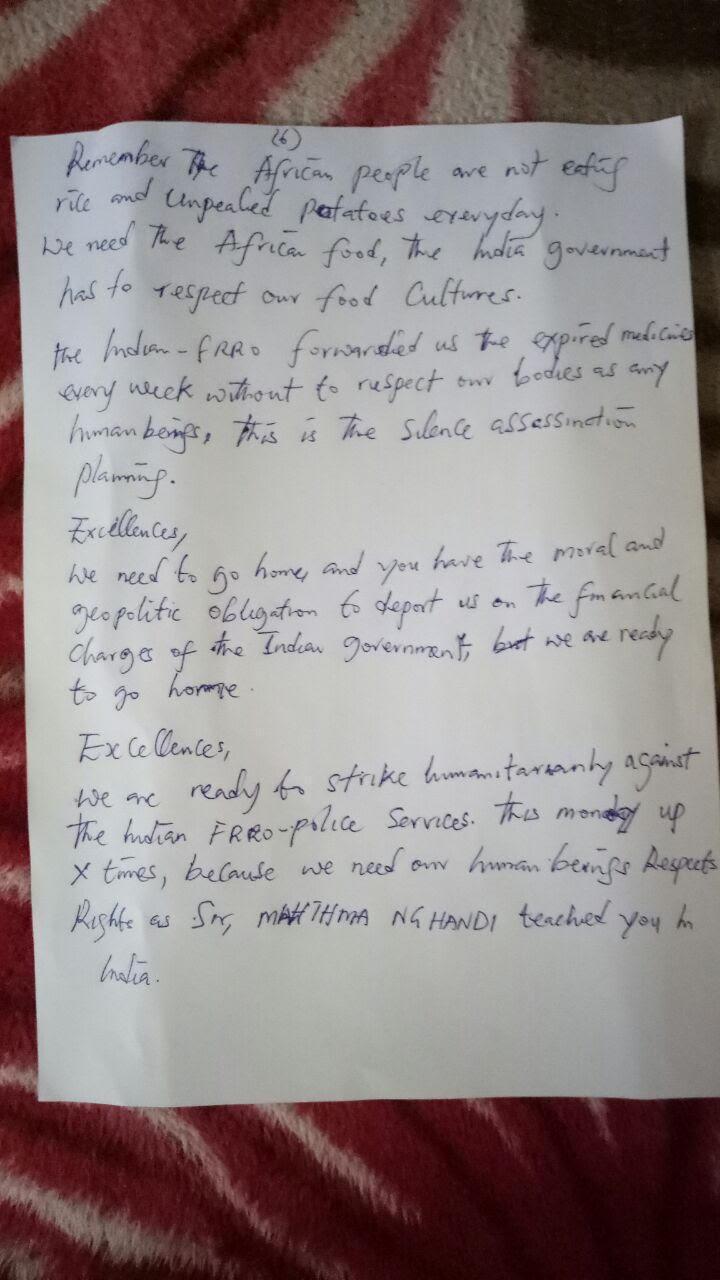 (6)
Remember The African people are not eating
rice and Unpealed Potatoes everyday.
We need The African food, The India government
has to respect our food Cultures.
The Indian-FRRO forwardied us The expired medicines
every week without to respect our bodies as any
human beings, This is The Silence assassination
planning.
Excellences,
We need to go home, and you have The moral and
geopolitic obligation to deport us on The financial
Charges of The Indian government, but we are ready
to go home.
Excellences,
We are ready to strike humanitarianly against
The Indian FRRO-police Services. This monday up
X times, because we need our human beings Respects
Rights as Sir, MAHTHMA NGHANDI teached you In
India.